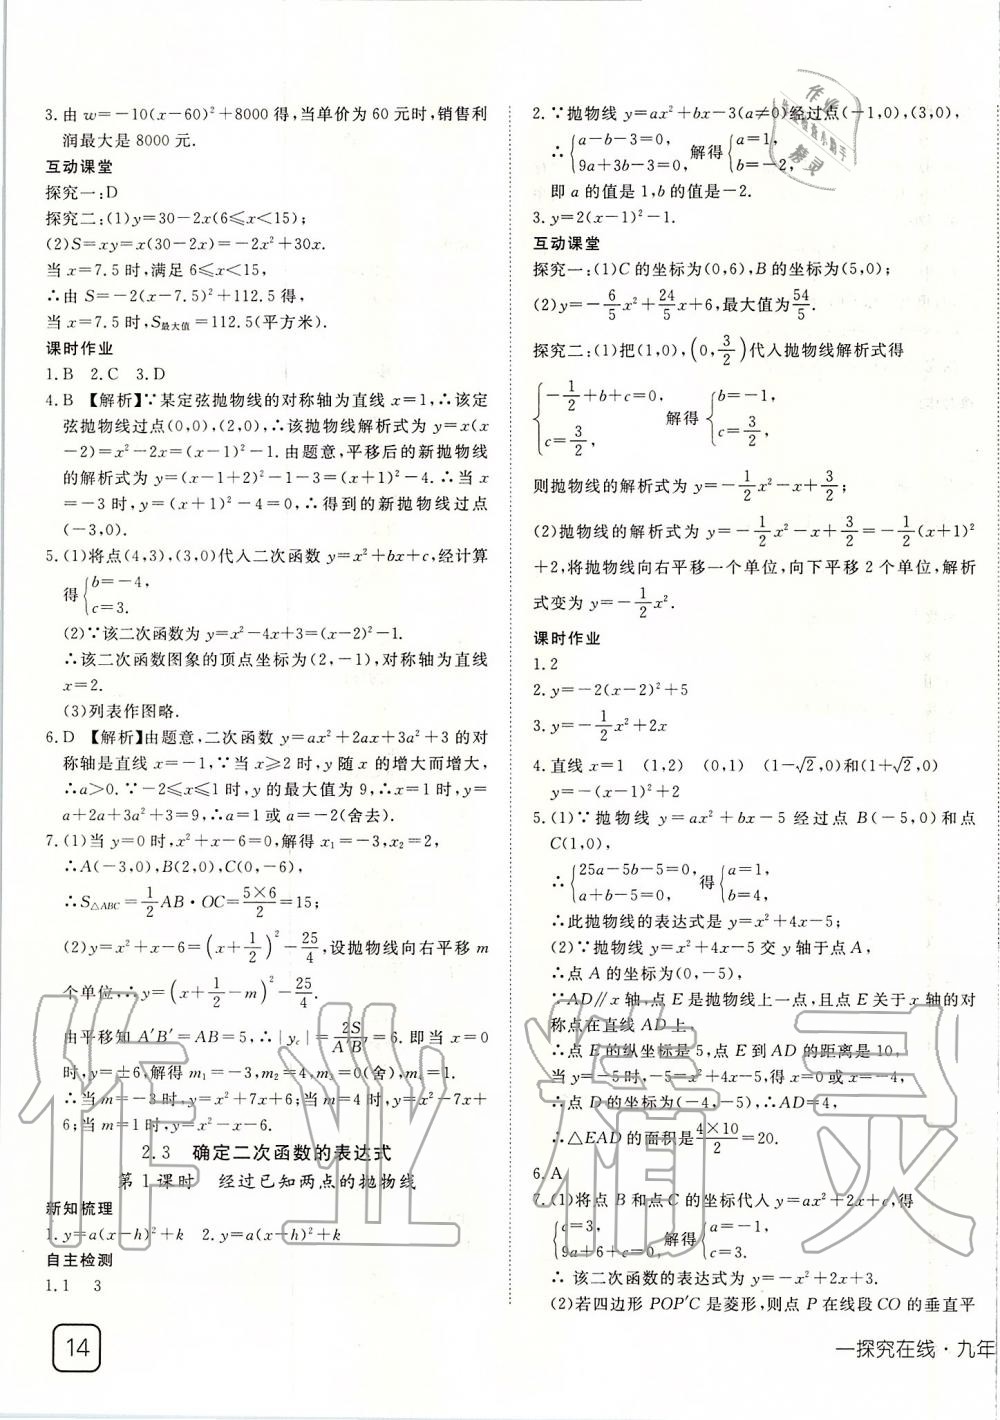 3. 由 w=-10(x-60)²+8000 得,当单价为 60 元时,销售利
润最大是 8000 元.
互动课堂
探究一:D
探究二:(1)y=30-2x(6≤x<15);
(2)S=xy=x(30-2x)=-2x²+30x.
当 x=7.5 时,满足 6≤x<15,
∴由 S=-2(x-7.5)²+112.5 得,
当 x=7.5 时,S最大值=112.5(平方米).
课时作业
1. B 2. C 3. D
4. B 【解析】∵某定弦抛物线的对称轴为直线 x=1,∴该定
弦抛物线过点(0,0),(2,0),∴该抛物线解析式为 y=x(x
-2)=x²-2x=(x-1)²-1. 由题意,平移后的新抛物线
的解析式为 y=(x-1+2)²-1-3=(x+1)²-4.∴当 x
=-3 时,y=(x+1)²-4=0,∴得到的新抛物线过点
(-3,0).
5. (1)将点(4,3),(3,0)代入二次函数 y=x²+bx+c,经计算
得{b=-4,
c=3.
(2)∵该二次函数为 y=x²-4x+3=(x-2)²-1.
∴该二次函数图象的顶点坐标为(2,-1),对称轴为直线
x=2.
(3)列表作图略.
6. D 【解析】由题意,二次函数 y=ax²+2ax+3a²+3 的对
称轴是直线 x=-1,∵当 x≥2 时,y 随 x 的增大而增大,
∴a>0.∵-2≤x≤1 时,y 的最大值为 9,∴x=1 时,y=
a+2a+3a²+3=9,∴a=1 或 a=-2(舍去).
7. (1)当 y=0 时,x²+x-6=0,解得 x₁=-3,x₂=2,
∴A(-3,0),B(2,0),C(0,-6),
∴S△ABC=1/2 AB·OC=5×6/2=15;
(2)y=x²+x-6=(x+1/2)²-25/4,设抛物线向右平移 m
个单位,∴y=(x+1/2-m)²-25/4.
由平移知 A′B′=AB=5,∴|yc|=2S/A′B′=6. 即当 x=0
时,y=±6,解得 m₁=-3,m₂=4,m₃=0(舍),m₄=1.
∴当 m=-3 时,y=x²+7x+6;当 m=4 时,y=x²-7x+
6;当 m=1 时,y=x²-x-6.
2.3 确定二次函数的表达式
第 1 课时 经过已知两点的抛物线
新知梳理
1. y=a(x-h)²+k 2. y=a(x-h)²+k
自主检测
1. 1 3
14
2. ∵抛物线 y=ax²+bx-3(a≠0)经过点(-1,0),(3,0),
∴{a-b-3=0, 解得{a=1,
9a+3b-3=0, b=-2,
即 a 的值是 1,b 的值是-2.
3. y=2(x-1)²-1.
互动课堂
探究一:(1)C 的坐标为(0,6),B 的坐标为(5,0);
(2)y=-6/5x²+24/5x+6,最大值为54/5.
探究二:(1)把(1,0),(0,3/2)代入抛物线解析式得
{-1/2+b+c=0, 解得{b=-1,
c=3/2, c=3/2,
则抛物线的解析式为 y=-1/2x²-x+3/2;
(2)抛物线的解析式为 y=-1/2x²-x+3/2=-1/2(x+1)²
+2,将抛物线向右平移一个单位,向下平移 2 个单位,解析
式变为 y=-1/2x².
课时作业
1. 2
2. y=-2(x-2)²+5
3. y=-1/2x²+2x
4. 直线 x=1 (1,2) (0,1) (1-√2,0)和(1+√2,0)
y=-(x-1)²+2
5. (1)∵抛物线 y=ax²+bx-5 经过点 B(-5,0)和点
C(1,0),
∴{25a-5b-5=0, 得{a=1,
a+b-5=0, b=4,
∴此抛物线的表达式是 y=x²+4x-5;
(2)∵抛物线 y=x²+4x-5 交 y 轴于点 A,
∴点 A 的坐标为(0,-5),
∵AD∥x 轴,点 E 是抛物线上一点,且点 E 关于 x 轴的对
称点在直线 AD 上,
∴点 E 的纵坐标是 5,点 E 到 AD 的距离是 10,
当 y=-5 时,-5=x²+4x-5,得 x=0 或 x=-4,
∴点 D 的坐标为(-4,-5),∴AD=4,
∴△EAD 的面积是4×10/2=20.
6. A
7. (1)将点 B 和点 C 的坐标代入 y=ax²+2x+c,得
{c=3, 解得{a=-1,
9a+6+c=0, c=3.
∴ 该二次函数的表达式为 y=-x²+2x+3.
(2)若四边形 POP′C 是菱形,则点 P 在线段 CO 的垂直平
一探究在线·九年
作业精灵